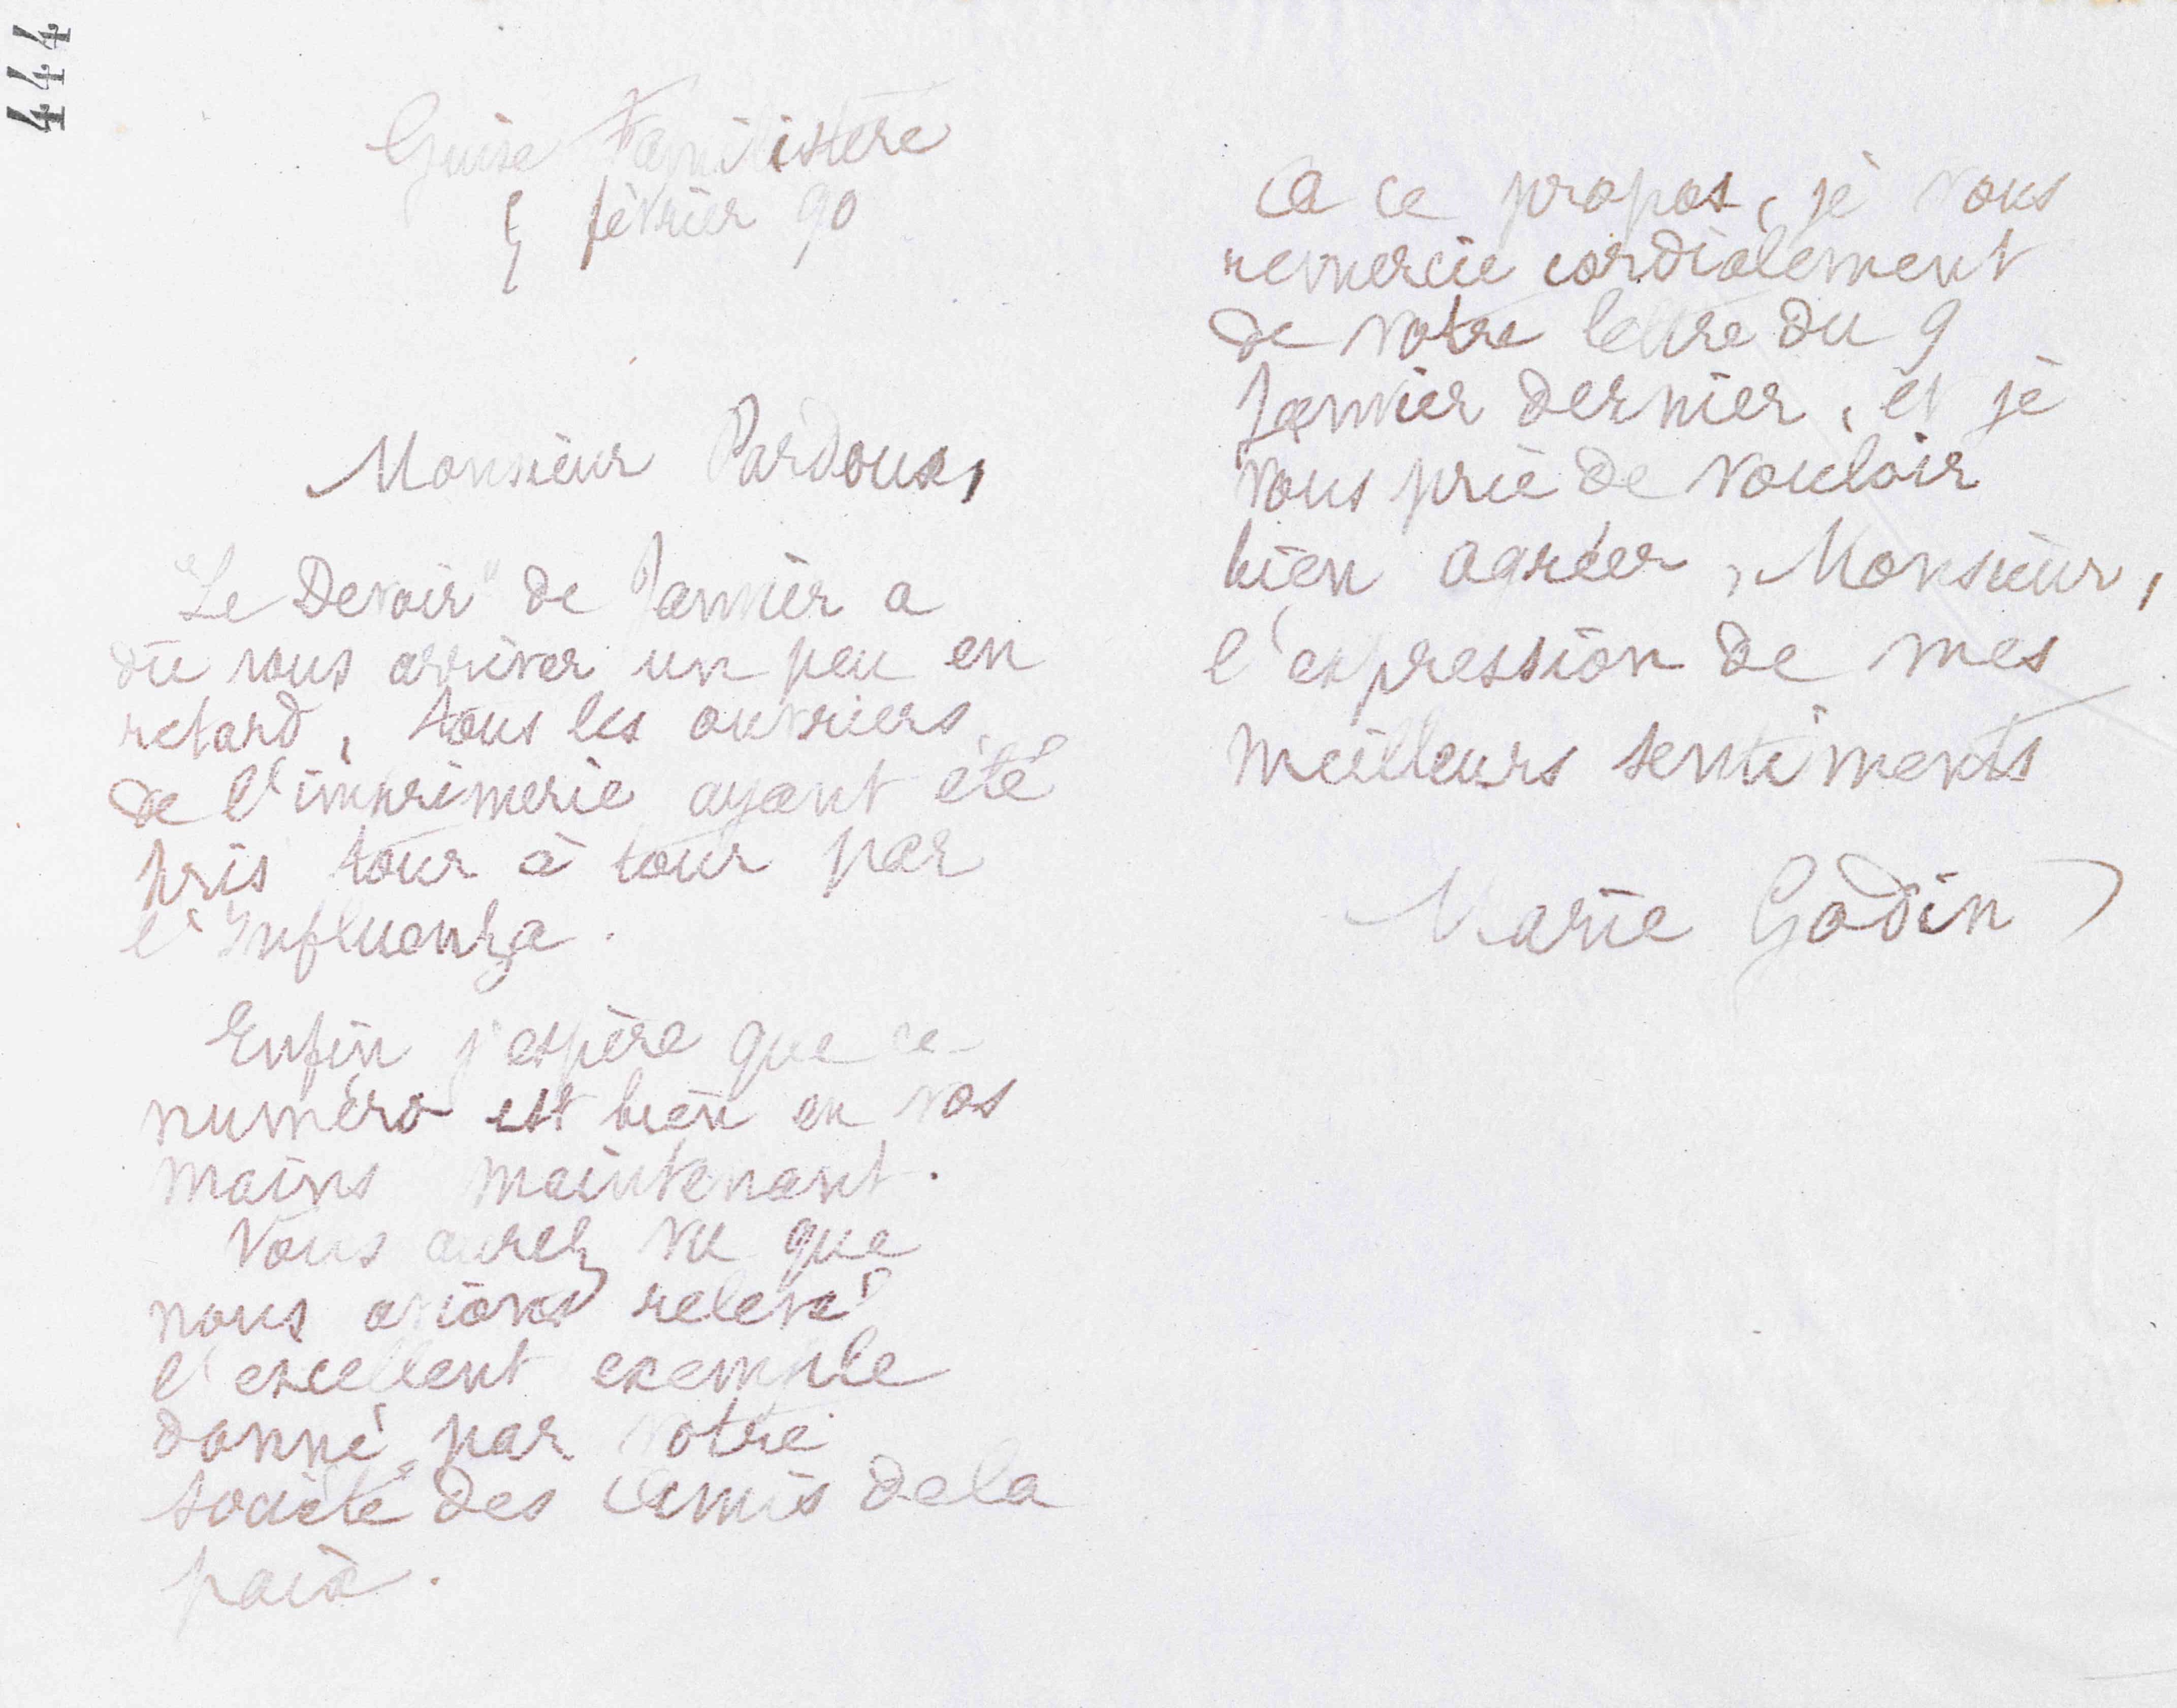 444
Guise Familistère
5 février 90
Monsieur Pardoux,
"Le Devoir" de Janvier a
dû vous arriver un peu en
retard, tous les ouvriers
de l'imprimerie ayant été
pris tour à tour par
l'Influenza.
Enfin j'espère que ce
numéro est bien en vos
mains maintenant.
Vous aurez vu que
nous avions relevé
l'excellent exemple
donné par votre
société des Amis de la
paix.
A ce propos, je vous
remercie cordialement
de votre lettre du 9
Janvier dernier, et je
vous prie de vouloir
bien agréer, Monsieur,
l'expression de mes
meilleurs sentiments
Marie Godin